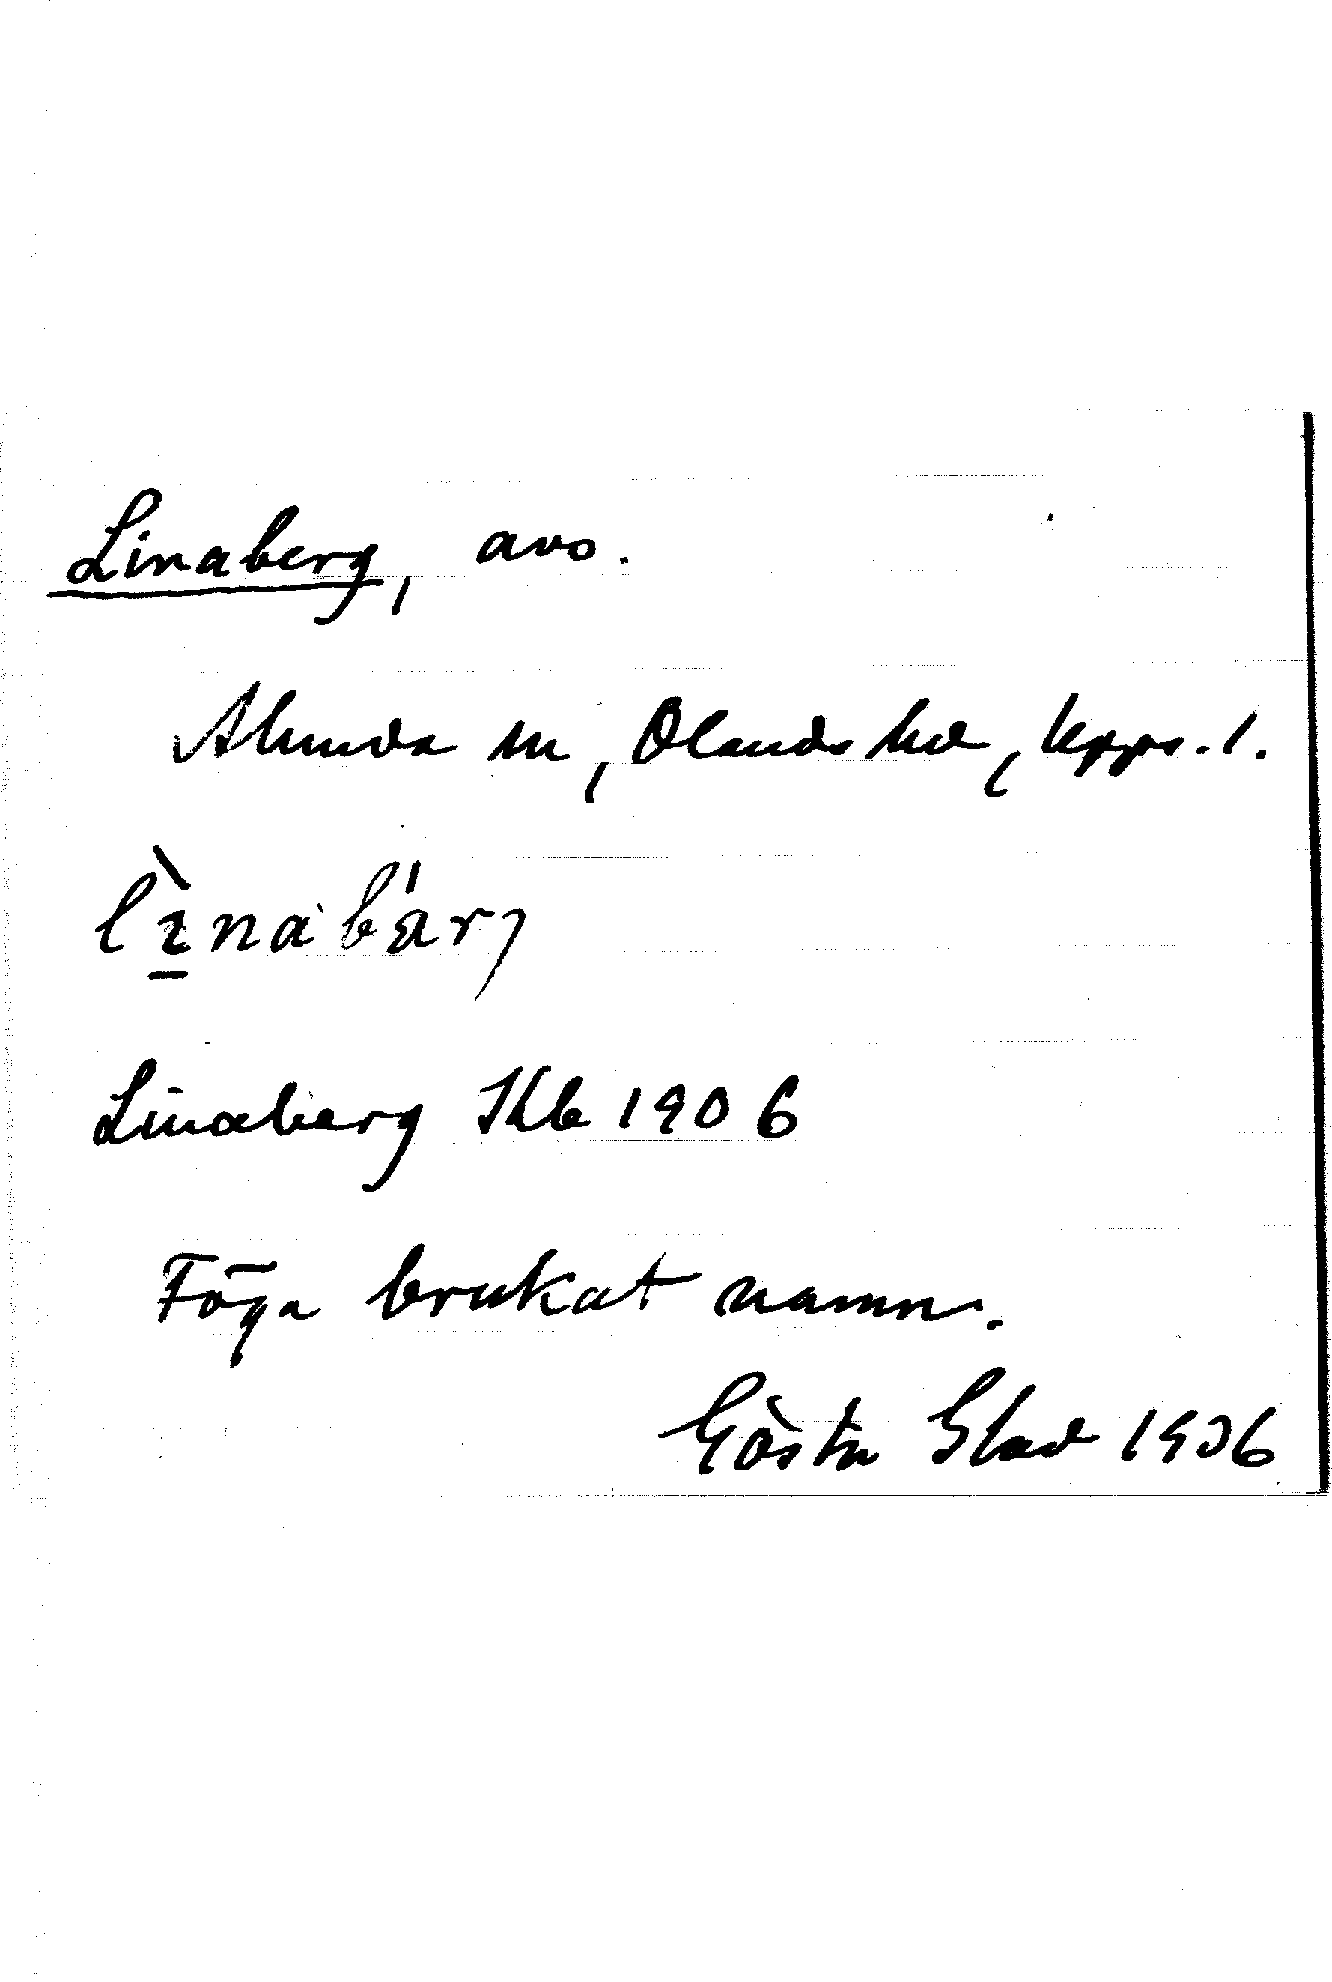 Linaberg, avs.
Alunda sn, Olands hd, Upps. l.
lìnabár
Linaberg Skb 1906
Föga brukat namn.
Gösta Blad 1936